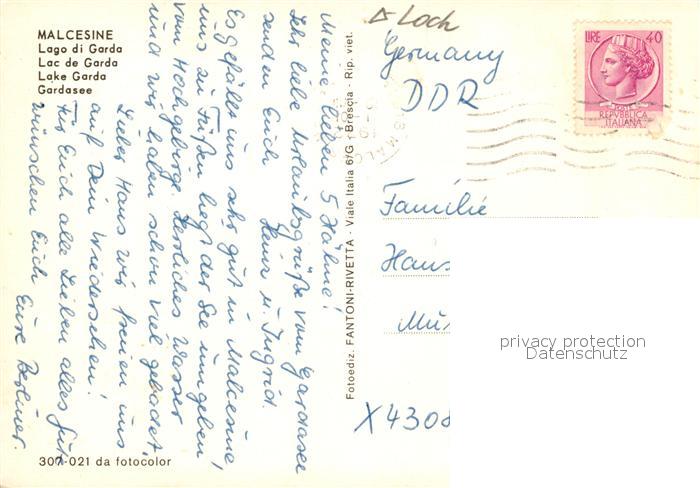 MALCESINE
Lago di Garda
Lac de Garda
Lake Garda
Gardasee
Meine lieben 5 Hähne!
Ihr liebe Urlaubsgrüße vom Gardasee
senden Euch Heinz u. Ingrid.
Es gefällt uns sehr gut in Malcesine,
uns zu Füßen liegt der See umgeben
vom Hochgebirge. Herrliches Wasser
und wir haben schon viel gebadet.
Lieber Hans wir freuen uns
auf Dein Wiedersehen!
Für Euch alle Lieben alles Gute
wünschen Euch Eure Berliner.
307-021 da fotocolor
Fotoediz. FANTONI-RIVETTA - Viale Italia 6/G - Brescia - Rip. viet.
Loch
Germany
DDR
LIRE 40
POSTE
REPVBBLICA
ITALIANA
Familie
Hans
X4308
privacy protection
Datenschutz